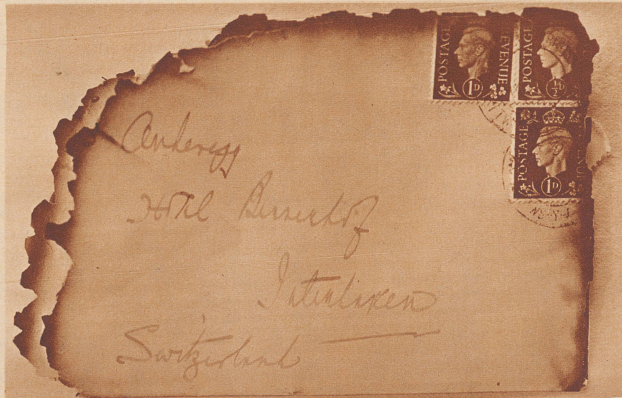 POSTAGE REVENUE
1D
POSTAGE
½D
POSTAGE REVENUE
1D
Anderegg
Hotel Bernerhof
Interlaken
Switzerland